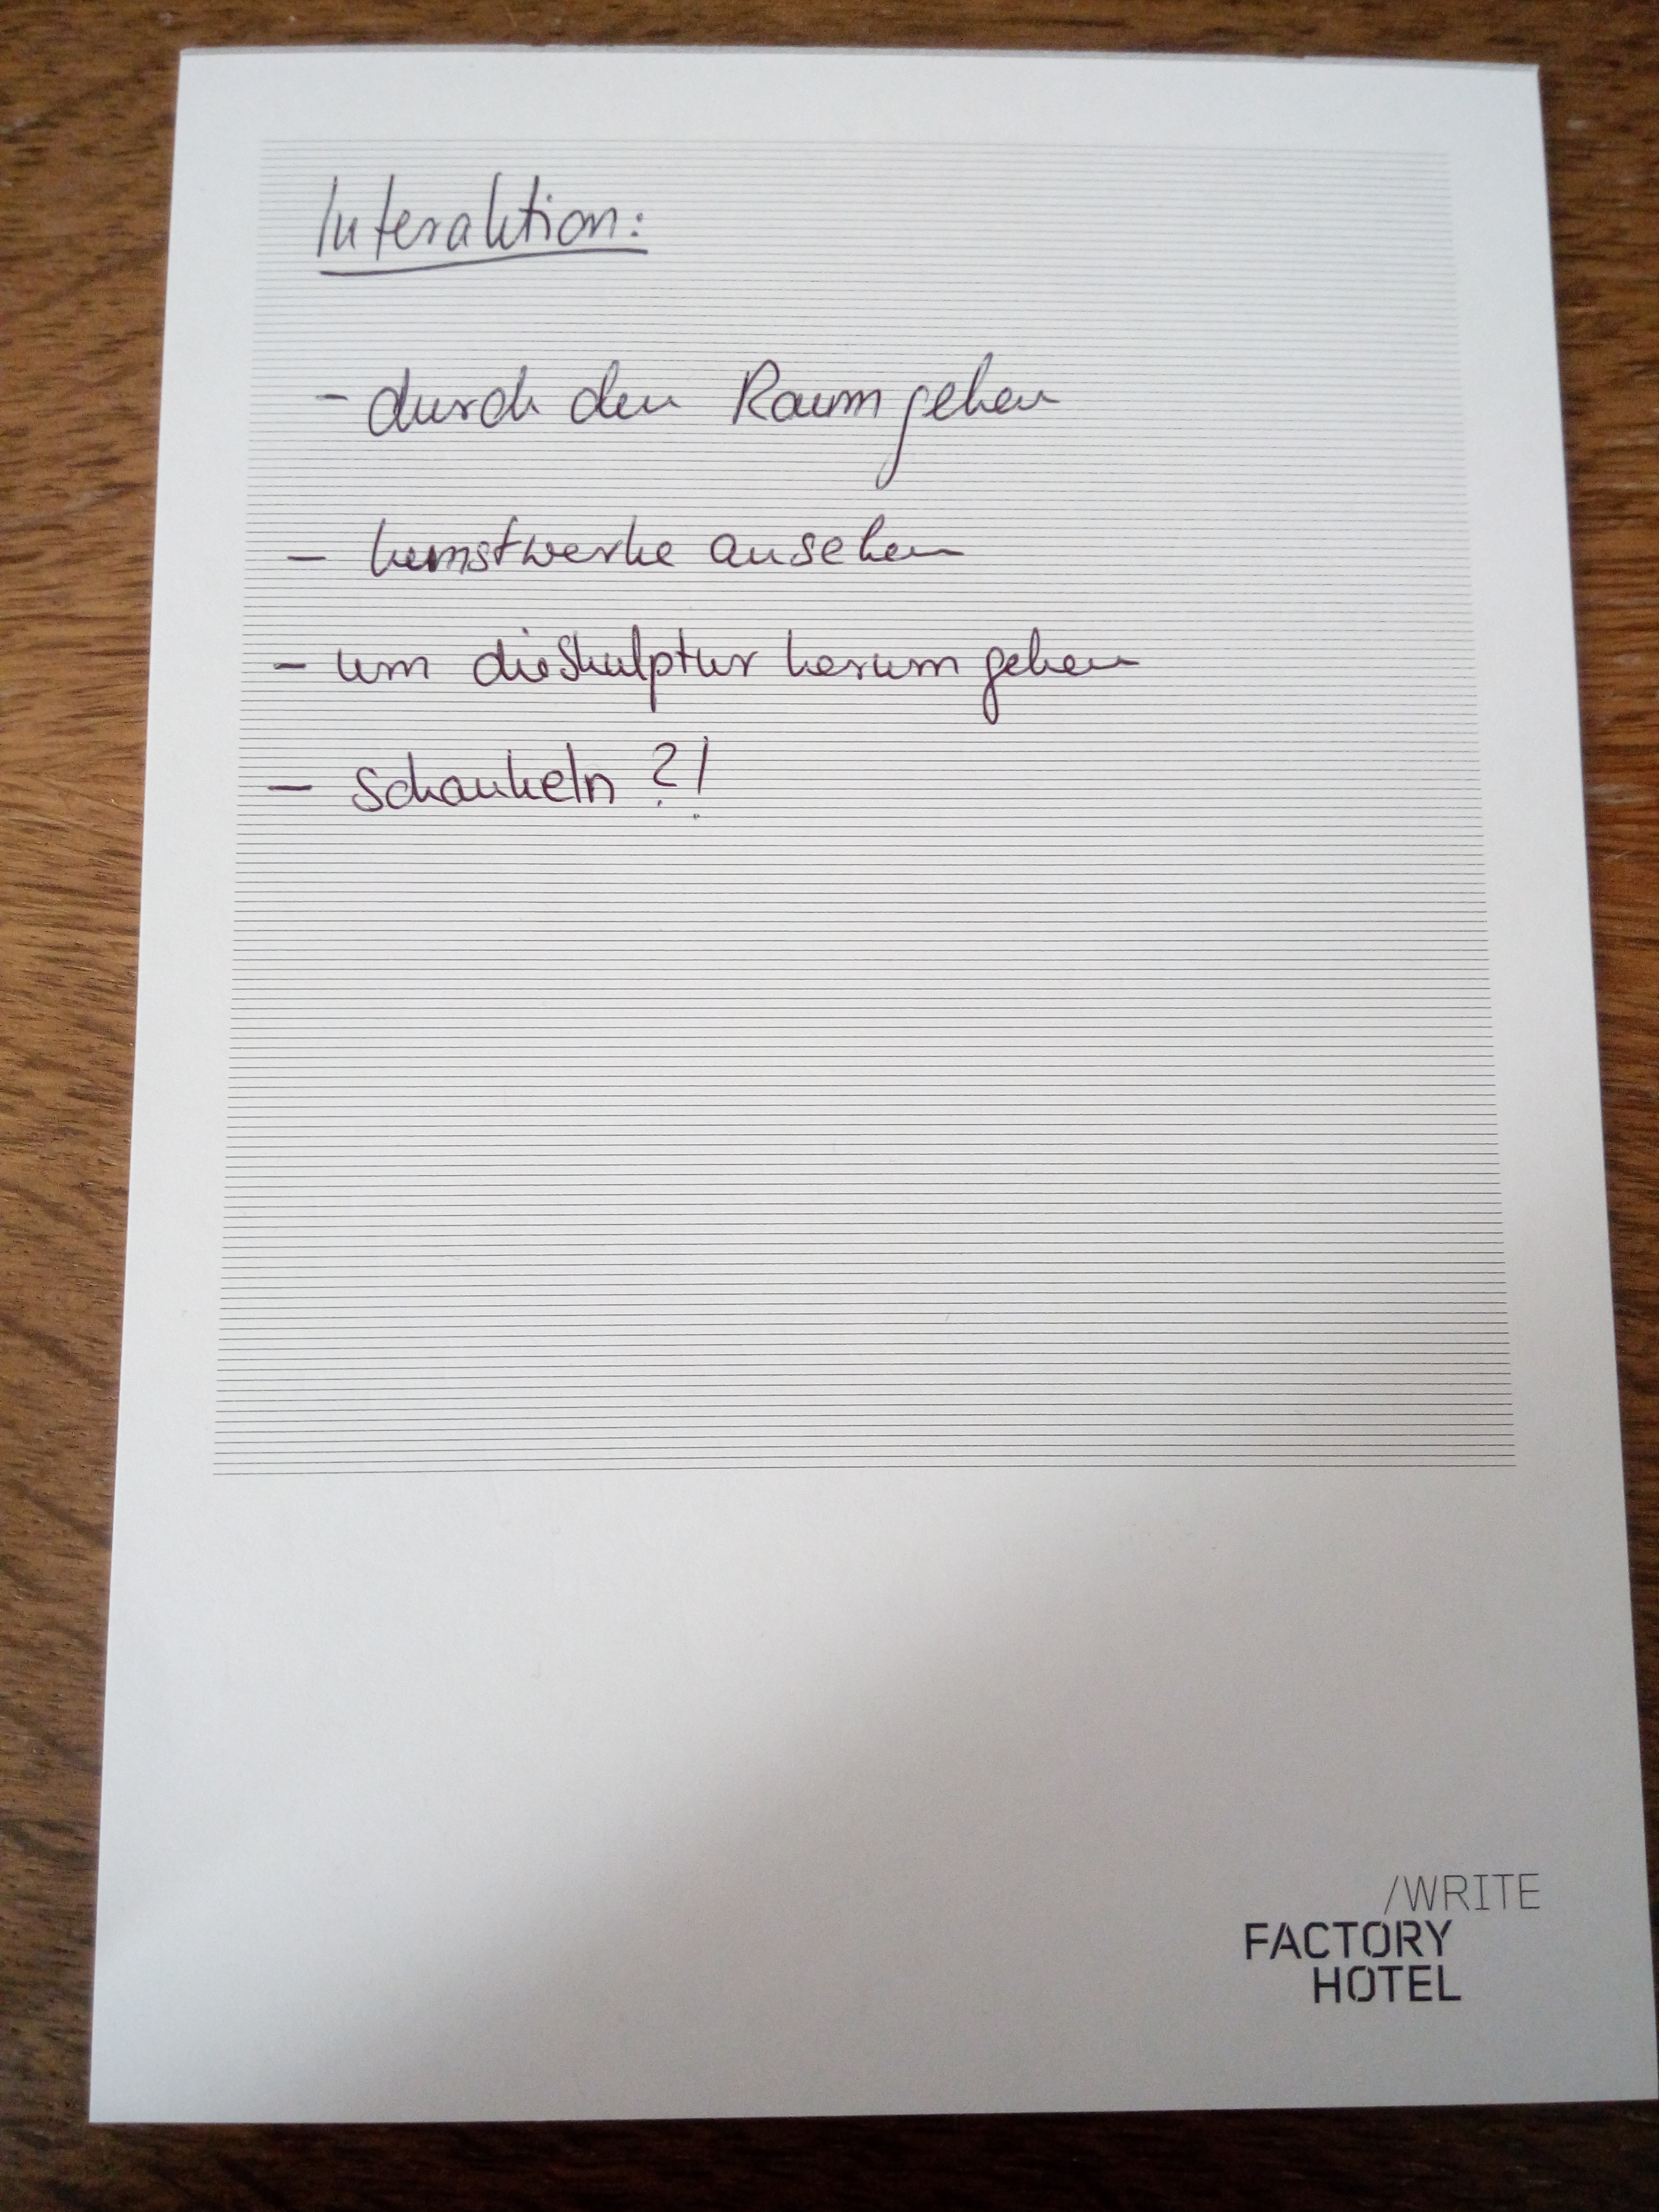 Interaktion:
- durch den Raum gehen
- kunstwerke ansehen
- um die Skulptur herum gehen
- schaukeln ?!
/WRITE
FACTORY
HOTEL